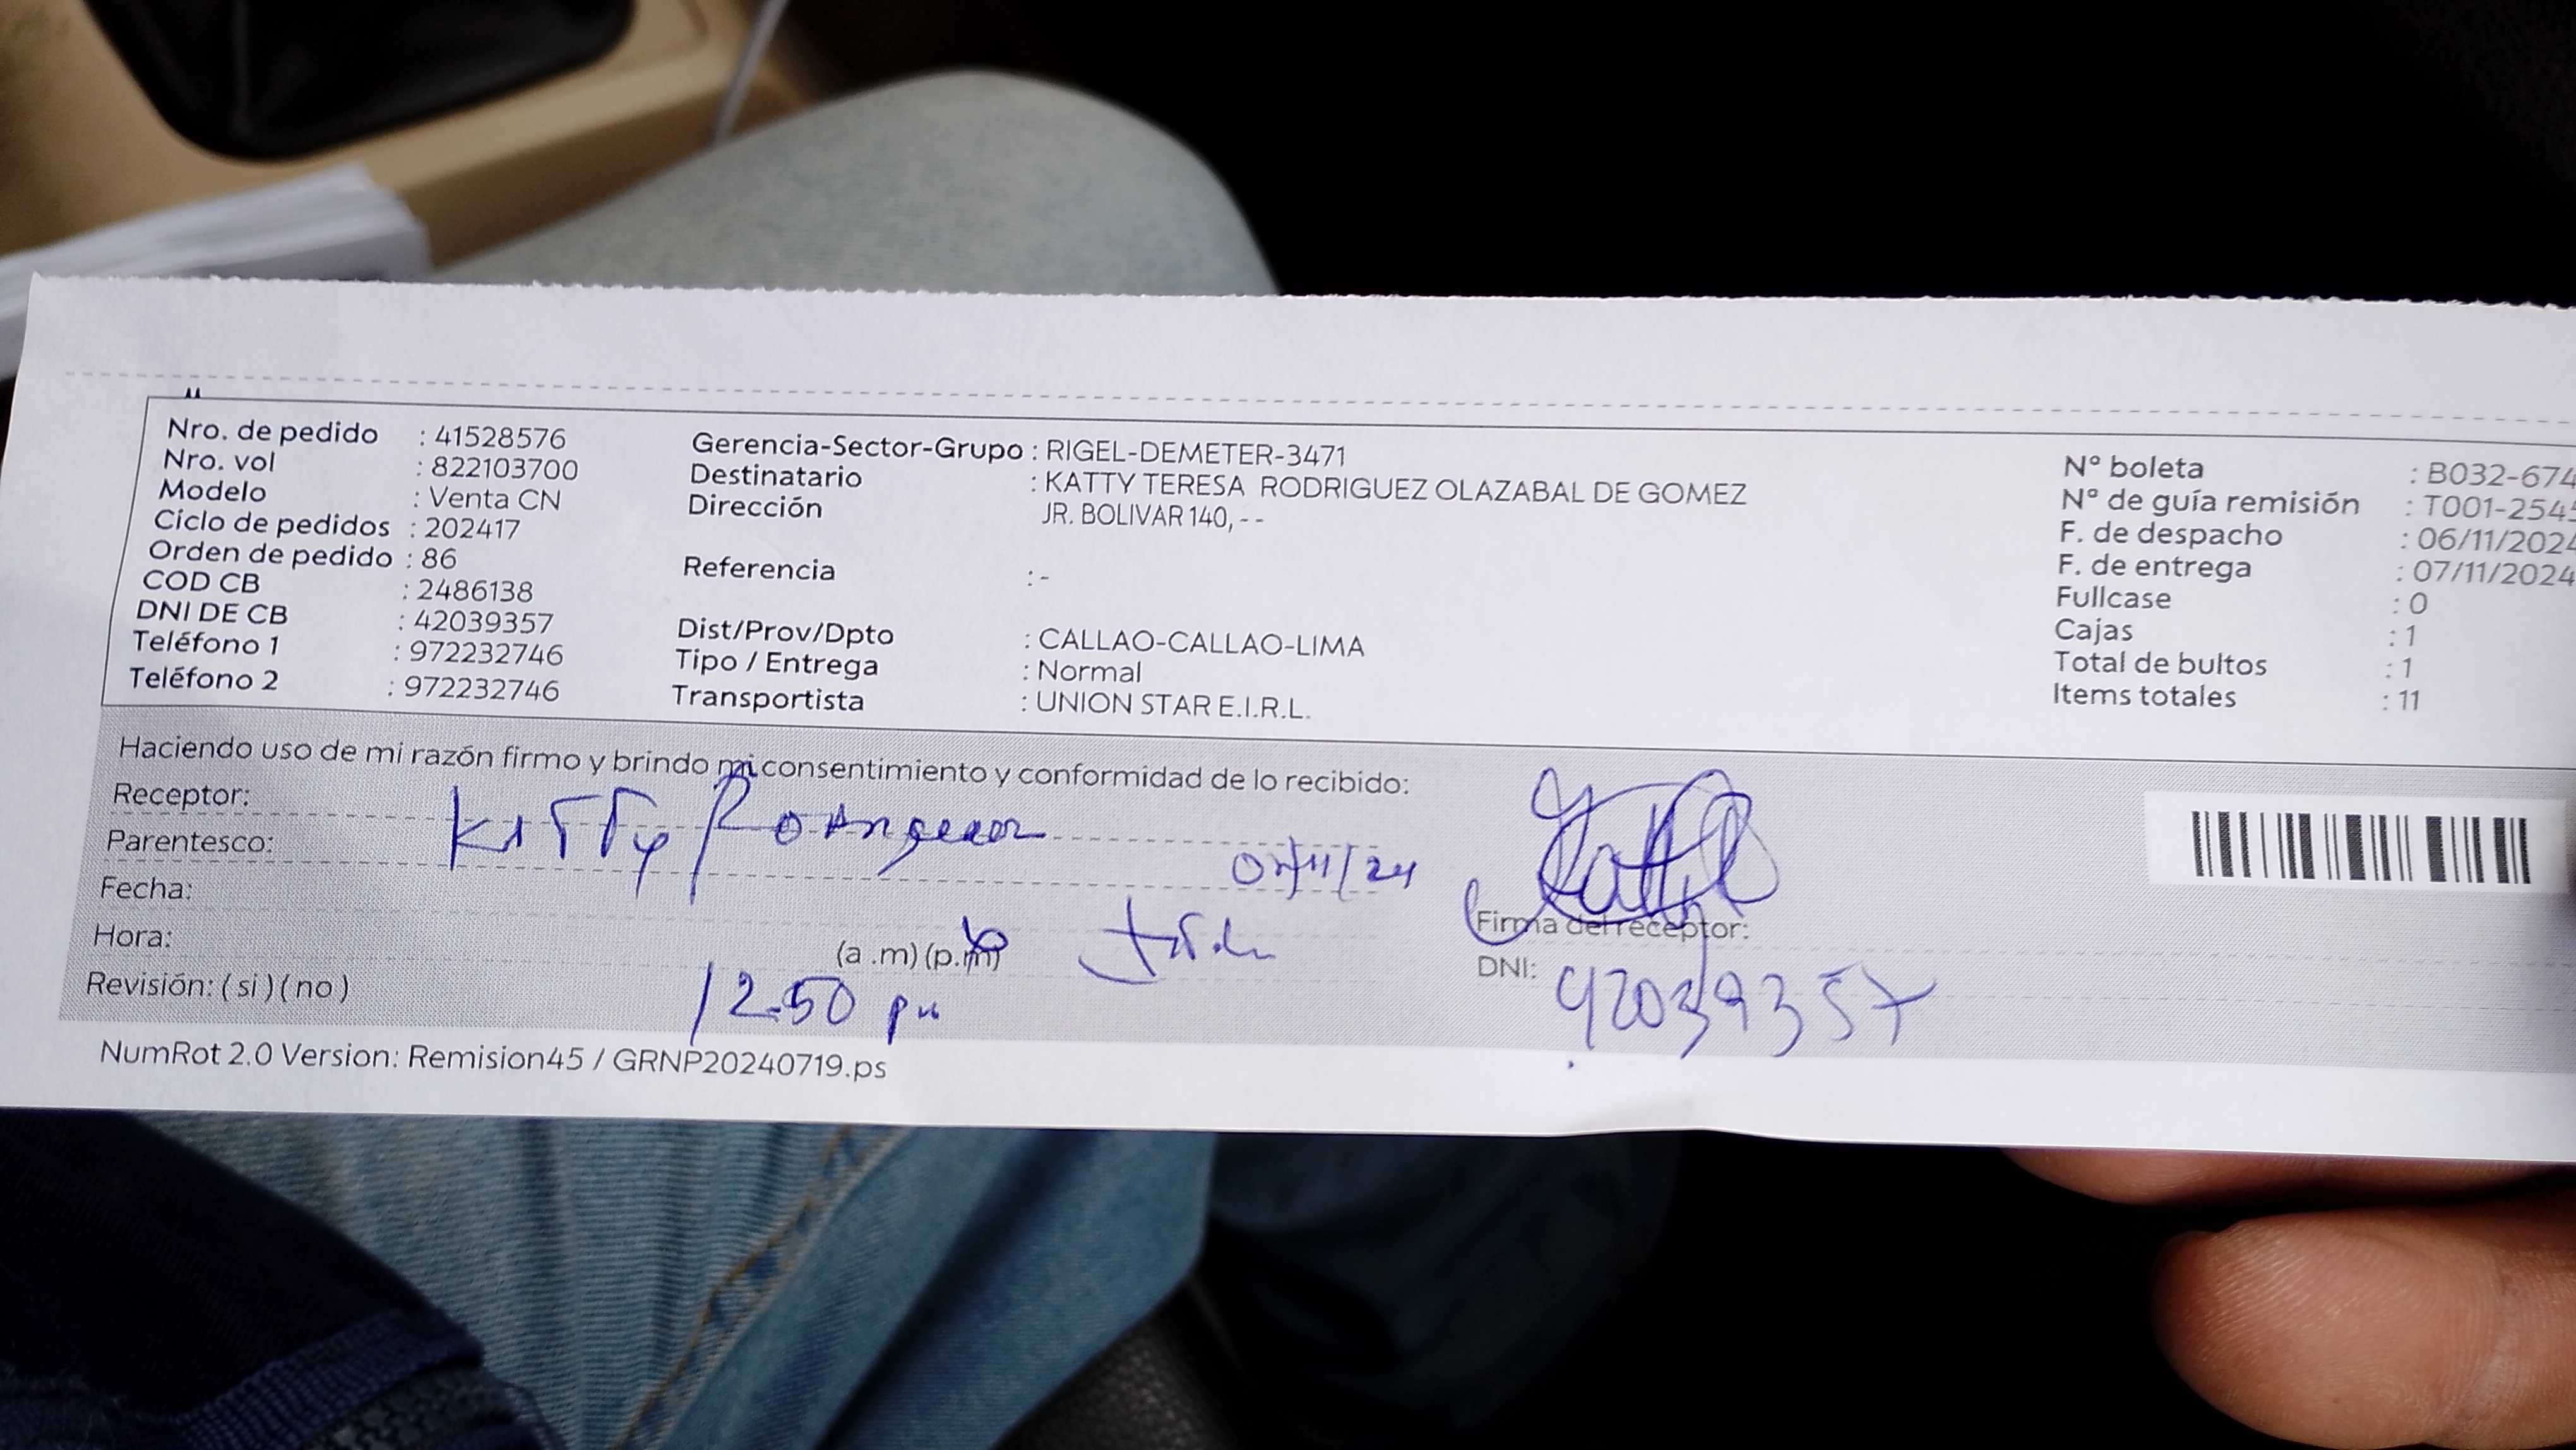 Nro. de pedido : 41528576
Nro. vol : 822103700
Modelo : Venta CN
Ciclo de pedidos : 202417
Orden de pedido : 86
COD CB : 2486138
DNI DE CB : 42039357
Teléfono 1 : 972232746
Teléfono 2 : 972232746
Gerencia-Sector-Grupo : RIGEL-DEMETER-3471
Destinatario : KATTY TERESA RODRIGUEZ OLAZABAL DE GOMEZ
Dirección JR. BOLIVAR 140, - -
Referencia : -
Dist/Prov/Dpto : CALLAO-CALLAO-LIMA
Tipo / Entrega : Normal
Transportista : UNION STAR E.I.R.L.
N° boleta : B032-674
N° de guía remisión : T001-254
F. de despacho : 06/11/2024
F. de entrega : 07/11/2024
Fullcase : 0
Cajas : 1
Total de bultos : 1
Items totales : 11
Haciendo uso de mi razón firmo y brindo mi consentimiento y conformidad de lo recibido:
Receptor:
Parentesco:
Fecha: 07/11/24
Hora: (a .m) (p.m)
Revisión: ( si ) ( no ) 12.50 pm
Firma del receptor:
DNI: 42039357
NumRot 2.0 Version: Remision45 / GRNP20240719.ps